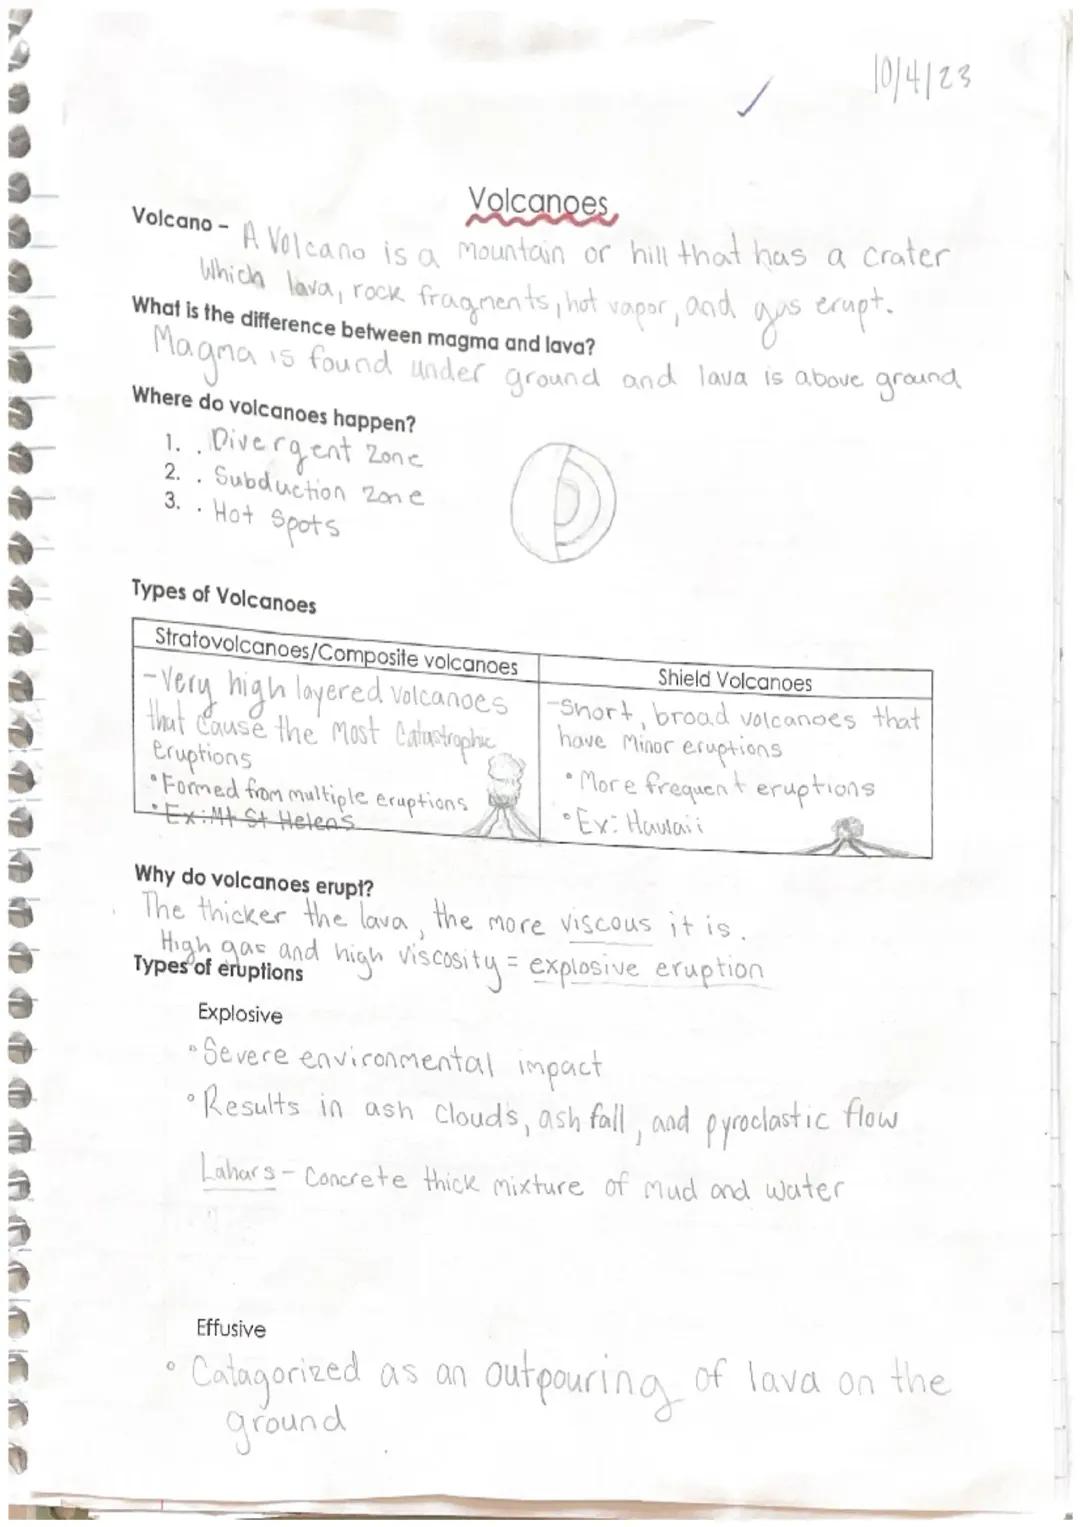 10/4/23
Volcanoes
Volcano - A Volcano is a mountain or hill that has a crater
Which lava, rock fragments, hot vapor, and gas erupt.
What is the difference between magma and lava?
Magma is found under ground and lava is above ground
Where do volcanoes happen?
1. . Divergent zone
2. . Subduction zone
3. . Hot spots
Types of Volcanoes
Stratovolcanoes/Composite volcanoes
-Very high layered volcanoes
that cause the most Catastrophic
eruptions
° Formed from multiple eruptions
° Ex: Mt St Helens
Shield Volcanoes
-Short, broad volcanoes that
have minor eruptions
° More frequent eruptions
° Ex: Hawaii
Why do volcanoes erupt?
The thicker the lava, the more viscous it is.
High gas and high viscosity = explosive eruption
Types of eruptions
Explosive
° Severe environmental impact
° Results in ash clouds, ash fall, and pyroclastic flow
Lahars - Concrete thick mixture of mud and water
Effusive
° Catagorized as an outpouring of lava on the
ground